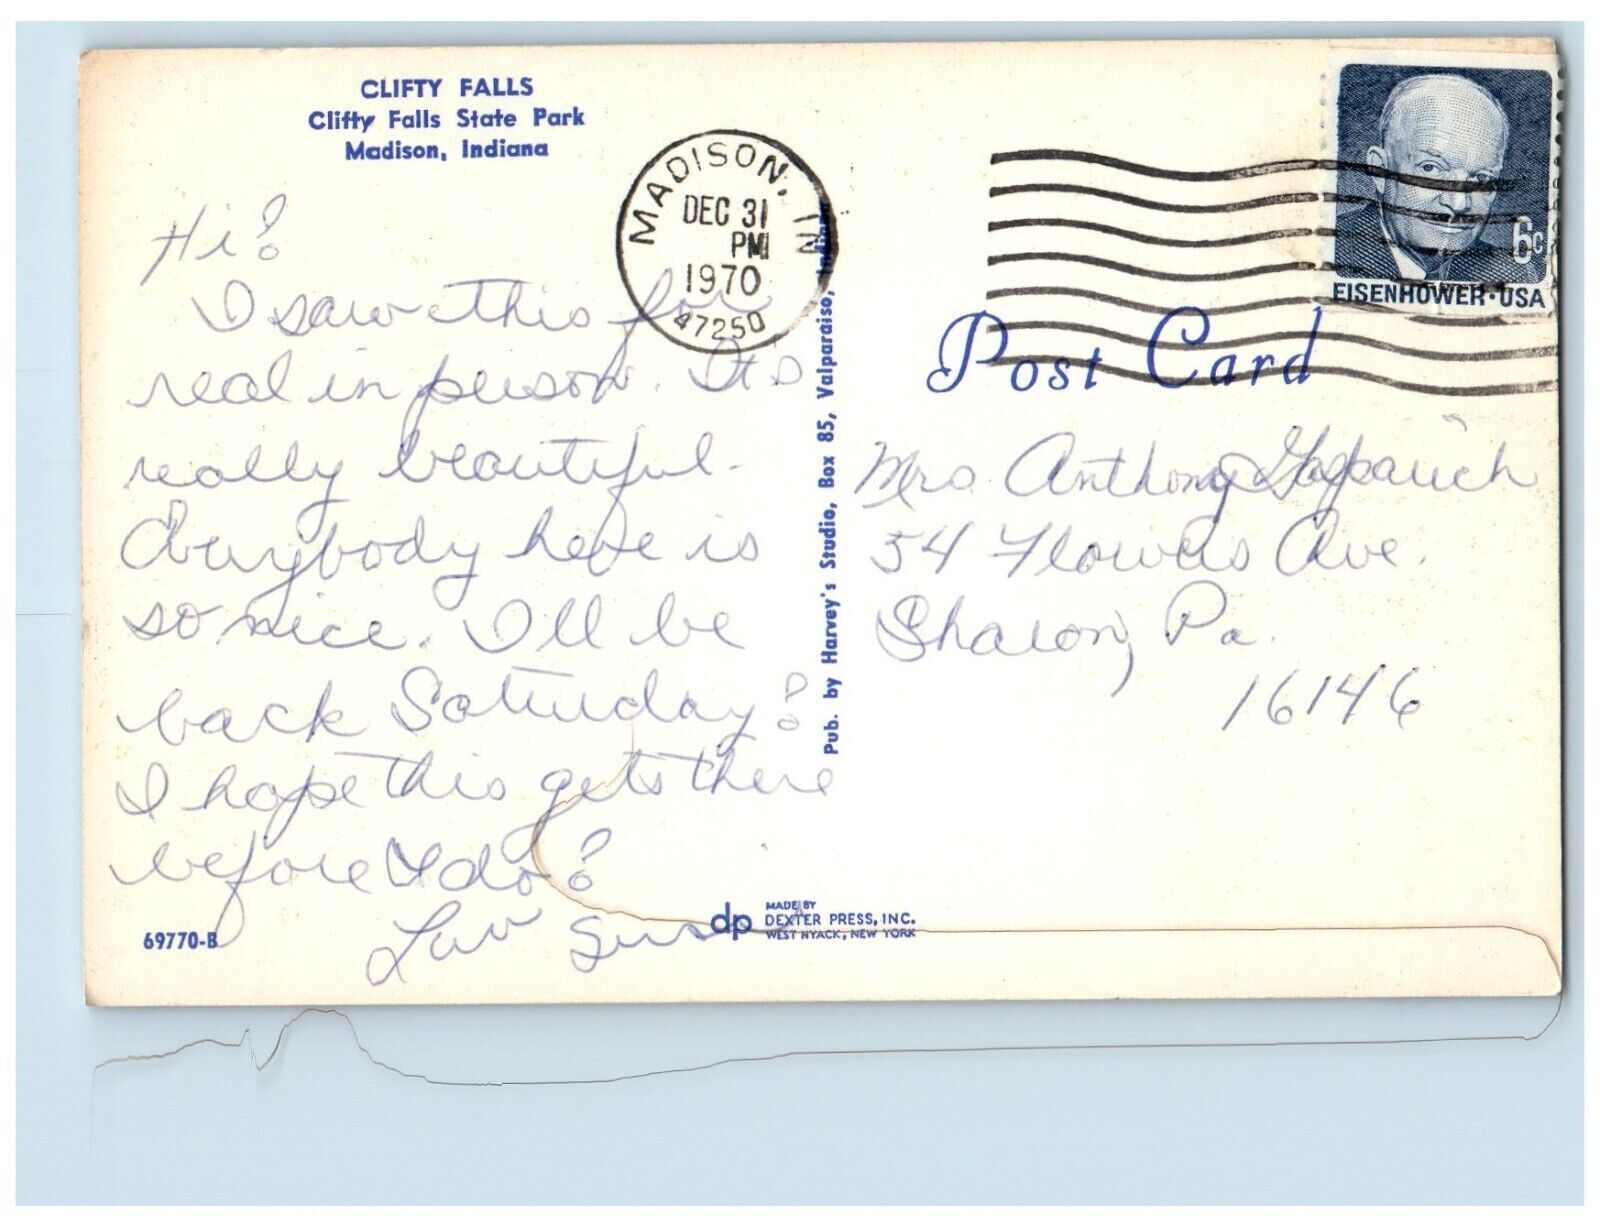 CLIFTY FALLS
Clifty Falls State Park
Madison, Indiana
MADISON, IN
DEC 31
PM
1970
47250
6c
EISENHOWER · USA
Post Card
Hi!
I saw this for
real in person. It's
really beautiful.
Everybody here is
so nice. I'll be
back Saturday!
I hope this gets there
before I do!
Luv
Mrs. Anthony
54 Flowers Ave.
Sharon, Pa.
16146
Pub. by Harvey's Studio, Box 85, Valparaiso, Indiana
69770-B
dp
MADE BY
DEXTER PRESS, INC.
WEST NYACK, NEW YORK